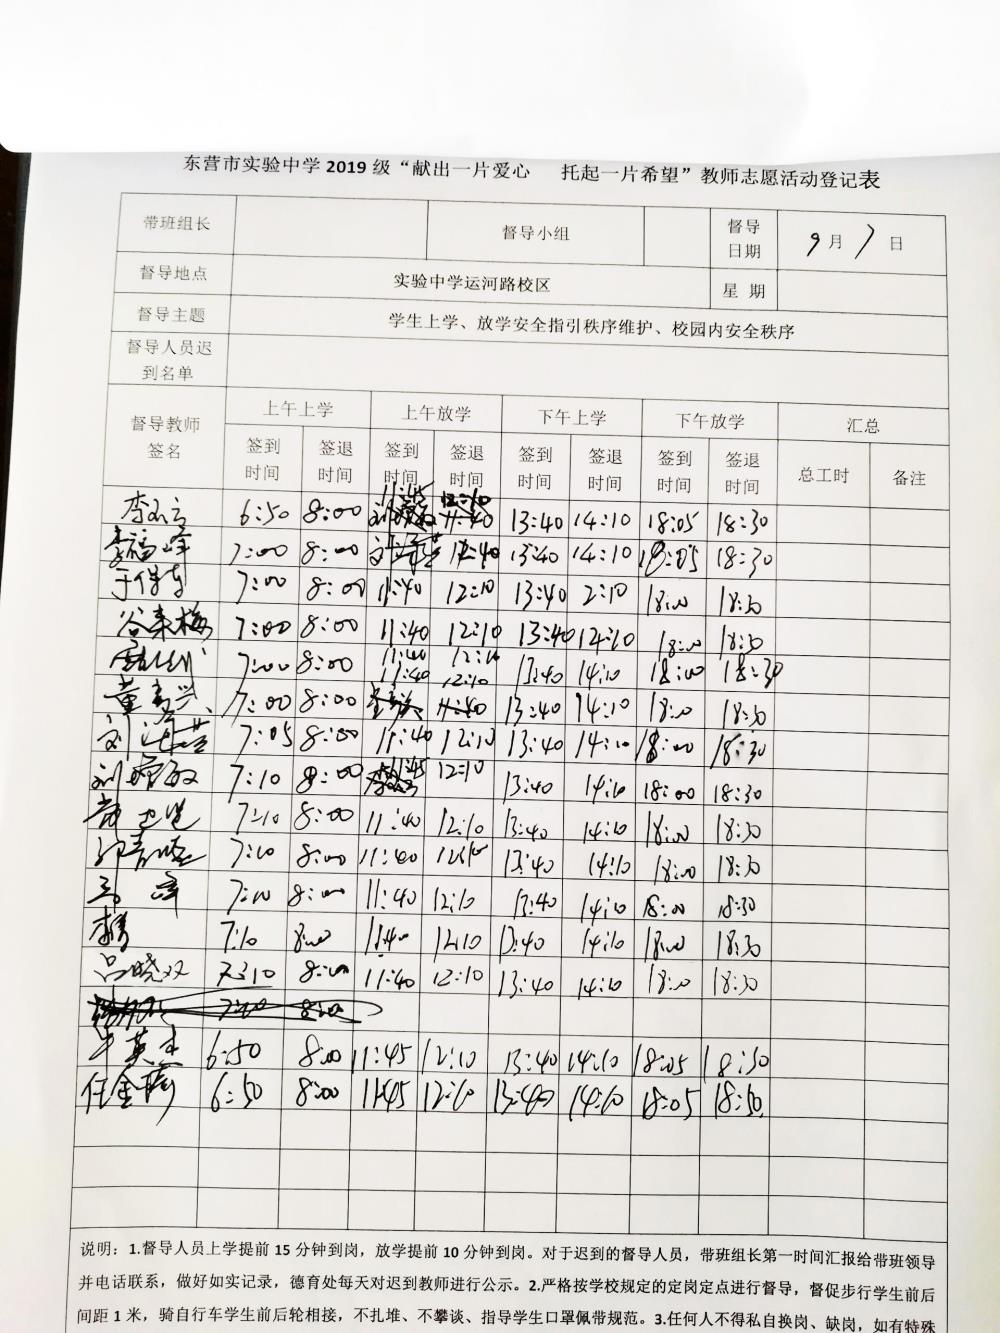 东营市实验中学2019级“献出一片爱心 托起一片希望”教师志愿活动登记表
带班组长 督导小组 督导日期 9月7日
督导地点 实验中学运河路校区 星 期
督导主题 学生上学、放学安全指引秩序维护、校园内安全秩序
督导人员迟到名单
督导教师签名 上午上学 上午放学 下午上学 下午放学 汇总
签到时间 签退时间 签到时间 签退时间 签到时间 签退时间 签到时间 签退时间 总工时 备注
6:50 8:00 11:45 12:10 13:40 14:10 18:05 18:30
李福峰 7:00 8:00 13:40 14:10 18:05 18:30
于佳音 7:00 8:00 11:40 12:10 13:40 2:10 18:00 18:30
谷素梅 7:00 8:00 11:40 12:10 13:40 14:10 18:00 18:30
7:00 8:00 11:40 12:10 13:40 14:10 18:00 18:30
11:40 12:10
7:00 8:00 13:40 14:10 18:00 18:30
7:05 8:00 11:40 12:10 13:40 14:10 18:00 18:30
7:10 8:00 11:45 12:10 13:40 14:10 18:00 18:30
7:10 8:00 11:40 12:10 13:40 14:10 18:00 18:30
7:10 8:00 11:40 12:10 13:40 14:10 18:00 18:30
7:10 8:00 11:40 12:10 13:40 14:10 18:00 18:30
7:10 8:00 11:40 12:10 13:40 14:10 18:00 18:30
吕晓双 7:10 8:00 11:40 12:10 13:40 14:10 18:00 18:30
牛英杰 6:50 8:00 11:45 12:10 13:40 14:10 18:05 18:30
任金梅 6:50 8:00 11:45 12:10 13:40 14:10 18:05 18:30
说明：1.督导人员上学提前15分钟到岗，放学提前10分钟到岗。对于迟到的督导人员，带班组长第一时间汇报给带班领导
并电话联系，做好如实记录，德育处每天对迟到教师进行公示。2.严格按学校规定的定岗定点进行督导，督促步行学生前后
间距1米，骑自行车学生前后轮相接，不扎堆、不攀谈、指导学生口罩佩带规范。3.任何人不得私自换岗、缺岗，如有特殊